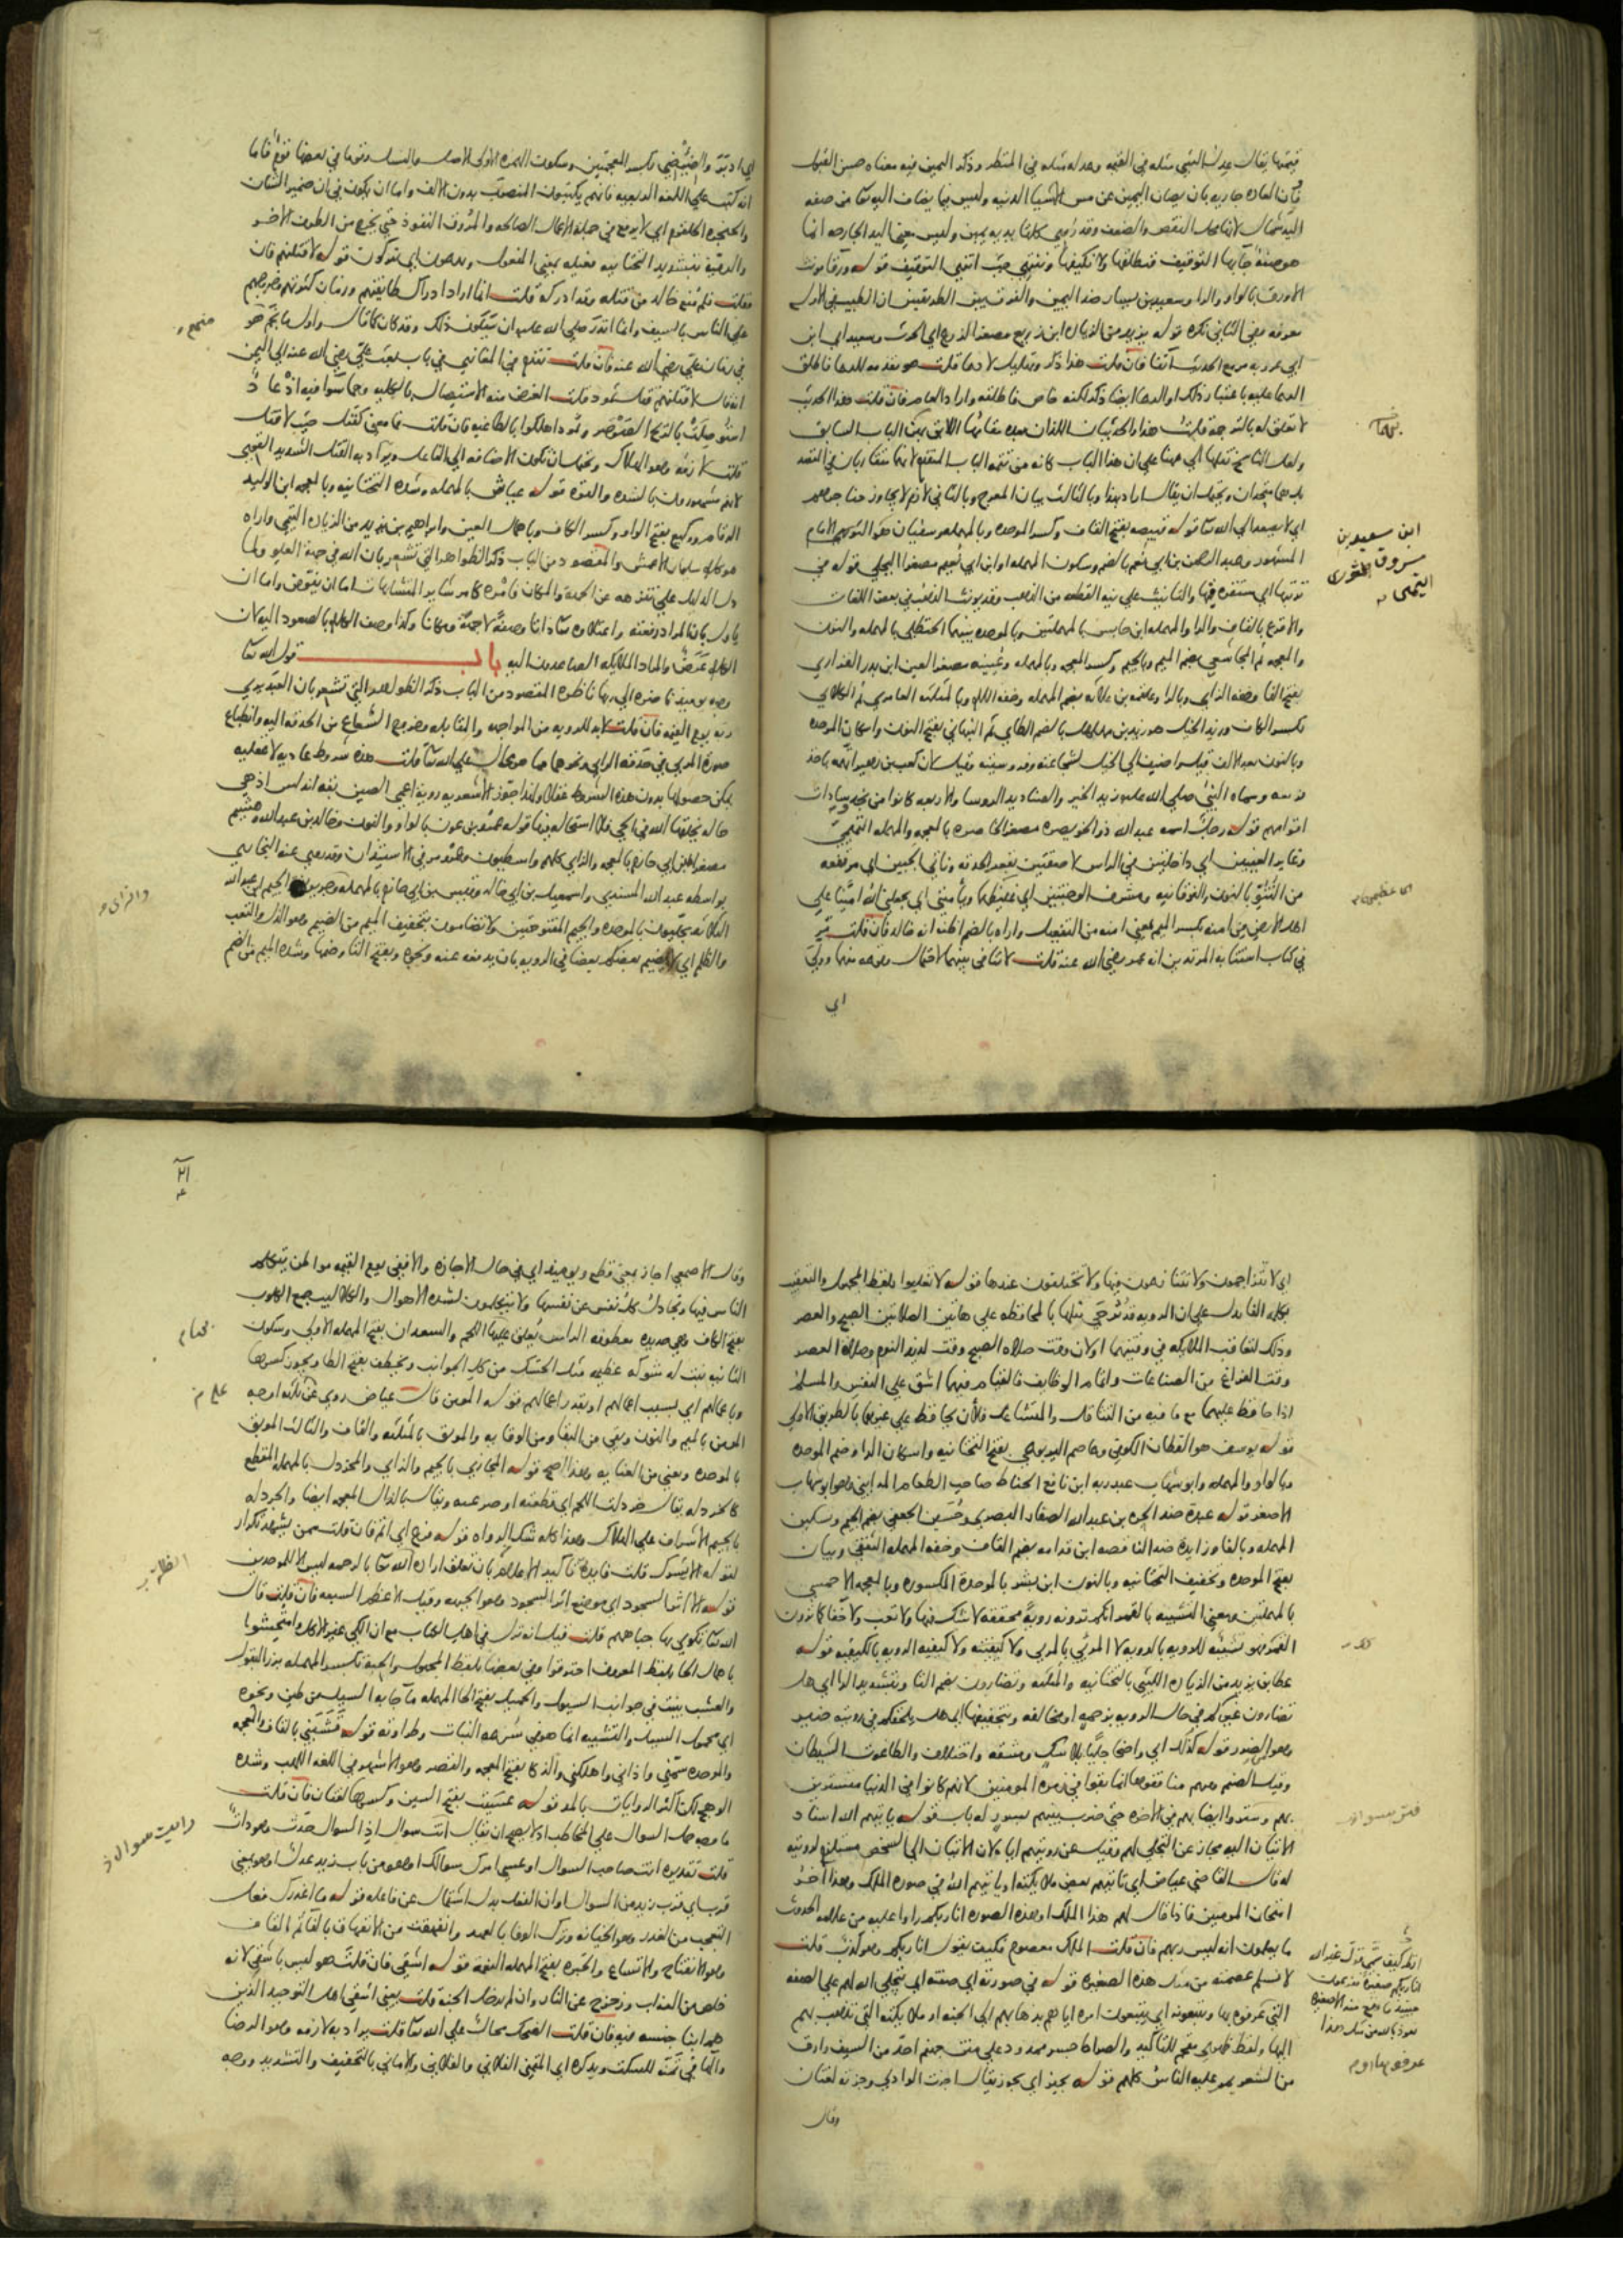 قيمتها يقال عدل الشي مثله في القيمه وعدله مثله في المنظر وذكر اليمين فيه معناه حسن القبول
فان العاده جاريه بان يصان اليمين عن مس الاشيا الدنيه وليس فيما يضاف اليه تعا من صفه
اليد شمال لانها محل النقص والضعف وقد روي كلتا يديه يمين وليس معنى اليد الجارحه انما
هو صفة جابها التوقيف فنطلقها ولا نكيفها وننتهي حيث انتهى التوقيف قوله ورقا مونث
الاورق بالواو والرا وسعيد بن يسار ضد اليمين والفرق بين الطريقين ان الطيب في الاول
معرفه وفي الثاني نكره قوله يزيد من الزياده ابن زريع مصغر الزرع اي الحرث وسعيد اي ابن
ابي عروبه مر مع الحديث آنفا فان قلت هذا ذكر وتهليل لا دعا قلت هو مقدمه للدعا فاطلق
الدعا عليه باعتبار ذلك او الدعا ايضا ذكر لكنه خاص فاطلقه واراد العام فان قلت هذا الحديث
لا تعلق له بالترجمة قلت هذا والحديثان اللذان بعده مقامها اللايق بهن الباب السابق
ولعل الناسخ نقلها الى هنا على ان هذا الباب كانه من تتمه الباب المتقدم لانهما متقاربان في المقصد
بل هما متحدان ويحتمل ان يقال اراد بهذا وبالثالث بيان المعرج وبالثاني لازم لا يجاوز حناجرهم
اي لا يصعد الى الله تعا قوله قبيصه بفتح القاف وكسر الموحده وبالمهمله وسفيان هو الثوري الامام
المشهور وعبد الرحمن بن ابي نعم بالضم وسكون المهمله او ابن ابي نعيم مصغرا البجلي قوله في
تربتها اي مستقره فيها والتانيث على نيه القطعه من الذهب وقد يونث الذهب في بعض اللغات
والاقرع بالقاف والرا والمهمله ابن حابس بالمهملتين وبالموحده بينهما الحنظلي بالمهمله والنون
والمعجمه ثم المجاشعي بضم الميم وبالجيم وكسر المعجمه وبالمهمله وعيينه مصغر العين ابن بدر الفزاري
بفتح الفا وخفه الزاي وبالرا وعلقمه بن علاثه بضم المهمله وخفه اللام وبالمثلثه العامري ثم الكلابي
بكسر الكاف وزيد الخيل هو زيد بن مهلهل بالضم الطايي ثم النبهاني بفتح النون واسكان الموحده
وبالنون بعد الالف قيل اضيف الى الخيل لشجاعته وفروسيته
اقوامهم قوله رجل اسمه عبد الله ذو الخويصره مصغر الخاصره بالمعجمه والمهمله التميمي
وغاير العينين اي داخلتين في الراس لاصقتين بقعر الحدقه وناتي الجبين اي مرتفعه
من النتو بالنون والفوقانيه ومشرف الوجنتين اي غليظهما ويأمنني اي يجعلني الله امينا على
اهل الارض من امنه بكسر الميم بمعنى امنه من التفعيل واراه بالضم اظنه انه خالد فان قلت مر
في كتاب استتابه المرتدين انه عمر رضي الله عنه قلت لا تنافي بينهما لاحتمال وقوعه منهما وولى
اي
ابن سعيد بن
مسروق الثوري
التيمي
اي ادبر والضئضئ بكسر المعجمتين وسكون الهمزه الاولى الاصل والنسل وقوما في بعضها قوم فاما
انه كتب على اللغه الربعيه فانهم يكتبون المنصوب بدون الالف واما ان يكون في ان ضمير الشان
والحنجره الحلقوم اي لا يرفع في جملة الاعمال الصالحه والمروق النفوذ حتى يخرج من الطرف الاخر
والرميه بتشديد التحتانيه فعيله بمعنى المفعول ويدعون اي يتركون قوله لاقتلنهم فان
فقلت فلم منع خالد من قتله وقد ادركه قلت انما اراد ادراك طايفتهم وزمان كثرتهم وخروجهم
على الناس بالسيف وانما انذر صلى الله عليه ان سيكون ذلك وقد كان كما قال واول ما نجم هو
في زمان علي رضي الله عنه فان قلت تقدم في المغازي في باب بعث علي رضي الله عنه الى اليمن
انه قال لاقتلنهم قتل ثمود قلت الغرض منه الاستيصال بالكليه وهما سوا فيه اذ عاد
استوصلت بالريح الصرصر وثمود اهلكوا بالطاغيه فان قلت فما معنى كقتل حيث لا قتل
قلت لازمه وهو الهلاك ويحتمل ان تكون الاضافه الى الفاعل ويراد به القتل الشديد القوي
لانهم مشهورون بالشده والقوة قوله عياش بالمهمله وشده التحتانيه وبالمعجمه ابن الوليد
الرقام ووكيع بفتح الواو وكسر الكاف وباهمال العين وابراهيم بن يزيد من الزياده التيمي واراه
هو كلام سليمان الاعمش والمقصود من الباب ذكر الظواهر التي تشعر بان الله في جهة العلو ولما
دل الدليل على تنزهه عن الجهة والمكان فامره كامر ساير المتشابهات اما ان يفوض واما ان
ياول بان المراد رفعته واعتلاوه تعا ذاتا وصفة لا جهة ومكانا وكذا وصف الكلام بالصعود اليه لان
الكلام عرض والمراد الملايكه الصاعدون اليه باب قول الله تعا
وجوه يوميذ ناضره الى ربها ناظره المقصود من الباب ذكر الظواهر التي تشعر بان العبد يرى
ربه يوم القيمه فان قلت لابد للرويه من المواجهه والمقابله وخروج الشعاع من الحدقه اليه وانطباع
صورة المري في حدقه الرايي ونحوها مما هو محال على الله تعا قلت هذه شروط عاديه لا عقليه
يمكن حصولها بدون هذه الشروط عقلا ولهذا جوز الاشعريه رويه اعمى الصين بقه اندلس اذ هي
حاله يخلقها الله في الحي فلا استحاله فيها قوله عمرو بن عون بالواو والنون وخالد بن عبد الله وهشيم
مصغرا ابن ابي حازم بالمعجمه والزاي كلهم واسطيون
والظلم اي لا يضيم بعضكم بعضا في الرويه بان يدفعه عنه ونحوه وبفتح التا وضمها وشده الميم من الضم
والزاي
اي لا تتزاحمون ولا تتنازعون فيها ولا تختلفون عندها قوله لا تغلبوا بلفظ المجهول والتعقيب
بكلمه الفا يدل على ان الرويه قد ترجى نيلها بالمحافظه على هاتين الصلاتين الصبح والعصر
وذلك لتعاقب الملايكه في وقتيهما او لان وقت صلاه الصبح وقت لذيذ النوم وصلاة العصر
وقت الفراغ من الصناعات واتمام الوظايف فالقيام فيهما اشق على النفس والمسلم
اذا حافظ عليهما مع ما فيه من التثاقل والتشاغل فلان يحافظ على غيرهما بالطريق الاولى
قوله يوسف هو القطان الكوفي وعاصم اليربوعي بفتح التحتانيه واسكان الرا وضم الموحده
وبالواو والمهمله وابو شهاب عبد ربه ابن نافع الحناط صاحب الطعام المدايني وهو ابو شهاب
الاصغر قوله عبدة ضد الحرة بن عبد الله الصفار البصري وحسين الجعفي بضم الجيم وسكون
المهمله وبالفا وزايدة ضد الناقصه ابن قدامه بضم القاف وخفه المهمله الثقفي وبيان
بفتح الموحده وتخفيف التحتانيه وبالنون ابن بشر بالموحدة المكسوره وبالمعجمه الاحمسي
بالمهملتين ومعنى التشبيه بالقمر انكم ترونه روية محققه لا شك فيها ولا تعب ولا خفا كما ترون
القمر فهو تشبيه للرويه بالرويه لا المرئي بالمري ولا كيفيته ولا كيفيه الرويه بالكيفيه قوله
عطا بن يزيد من الزياده الليثي بالتحتانيه والمثلثه وتضارون بضم التا وبتشديد الرا اي هل
تضارون غيركم في حال الرويه بزحمة او مخالفه وبتخفيفها اي هل يلحقكم في رويته ضير
وهو الضرر قوله كذلك اي واضحا جليا بلا شك ومشقه واختلاف والطاغوت الشيطان
وقيل الصنم وفيهم منافقوها انما بقوا في زمره المومنين لانهم كانوا في الدنيا مستترين
بهم وستروا ايضا بهم في الاخره حتى ضرب بينهم بسور له باب قوله ياتيهم الله اسناد
الاتيان اليه مجاز عن التجلي لهم وقيل عن رويتهم اياه لان الاتيان الى الشخص مستلزم لرويته
له قال القاضي عياض اي ياتيهم بعض ملايكته او ياتيهم الله في صوره الملك وهذا آخر
امتحان المومنين فاذا قال لهم هذا الملك او هذه الصوره انا ربكم راوا عليه من علامه الحدوث
ما يعلمون انه ليس ربهم فان قلت الملك معصوم فكيف يقول انا ربكم وهو كذب قلت
لا نسلم عصمته من مثل هذه الصغيره قوله في صورته اي صفته اي يتجلى الله لهم على الصفه
التي عرفوه بها ويتبعونه اي يتبعون امره اياهم بذهابهم الى الجنه او ملايكته التي تذهب بهم
اليها ولفظ ظهري مقحم للتاكيد والصراط جسر ممدود على متن جهنم احد من السيف وادق
من الشعر يمر عليه الناس كلهم قوله يجيز اي يجوز يقال اجزت الوادي وجزته لغتان
وقال
وقال الاصمعي اجاز بمعنى قطع ويوميذ اي في حال الاجازه والا ففي يوم القيمه مواطن يتكلم
الناس فيها وتجادل كل نفس عن نفسها ولا يتكلمون لشده الاهوال والكلاليب جمع الكلوب
بفتح الكاف وهي حديده معطوفه الراس يعلق عليها اللحم والسعدان بفتح المهمله الاولى وسكون
الثانيه نبت له شوكه عظيمه مثل الحسك من كل الجوانب وتخطف بفتح الطا ويجوز كسرها
وباعمالهم اي بسبب اعمالهم او بقدر اعمالهم قوله المومن قال عياض روي على ثلثه اوجه
المومن بالميم والنون وبقي من البقا ومن الوقايه والموبق بالمثلثه والقاف والثالث الموبق
بالموحده ويعني من العنايه وهذا اصح قوله المجازي بالجيم والزاي والمخردل بالمهمله المقطع
كالخردله يقال خردلت اللحم اي قطعته او صرعته ويقال بالذال المعجمه ايضا والجردله
بالجيم الاشراف على الهلاك وهذا كله شك الرواه قوله فرغ اي اتم فان قلت ممن يشهد تكرار
لقوله لا يشرك قلت فايدته تاكيد الاعلام بان تعلق اراده الله تعا بالرحمه ليس الا للموحدين
قوله الا اثر السجود اي موضع اثر السجود وهو الجبهه وقيل الاعظم السبعه فان قلت قال
الله تعا فتكوى بها جباههم قلت قيل انه نزل في اهل الكتاب مع ان الكي غير الاكل وامتحشوا
باهمال الحا بلفظ المعروف احترقوا وفي بعضها بلفظ المجهول والحبه بكسر المهمله بزر البقول
والعشب ينبت في جوانب السيول والحميل بفتح الحا المهمله ما جا به السيل من طين ونحوه
اي محمول السيل والتشبيه انما هو في سرعه النبات وطراوته قوله قشبني بالقاف والمعجمه
والموحده سمني واذاني واهلكني والذكا بفتح المعجمه والقصر وهو الاشهر في اللغه اللهب وشده
الوهج لكن اكثر الروايات بالمد قوله عسيت بفتح السين وكسرها لغتان فان قلت
ما وجه حمل السوال على المخاطب اذ لا يصح ان يقال انت سوال اذ السوال حدث وهو ذات
قلت تقديره انت صاحب السوال او عسى امرك سوالك او هو من باب زيد عدل او هو بمعنى
قرب اي قرب زيد من السوال او ان الفعل بدل اشتمال عن فاعله قوله ما اغدرك فعل
التعجب من الغدر وهو الخيانه وترك الوفا بالعهد وانفهقت من الانفهاق بالفا ثم القاف
وهو الانفتاح والاتساع والحبره بفتح المهمله النعمه قوله اشقى فان قلت هو ليس باشقى لانه
خلص من العذاب وزحزح عن النار وان لم يدخل الجنة قلت يعني اشقى اهل التوحيد الذين
هم ابنا جنسه فيه فان قلت الضحك محال على الله تعا قلت يراد به لازمه وهو الرضا
والها في تمنه للسكت ويذكره اي المتمنى الفلاني والفلاني والاماني بالتخفيف والتشديد ووجه